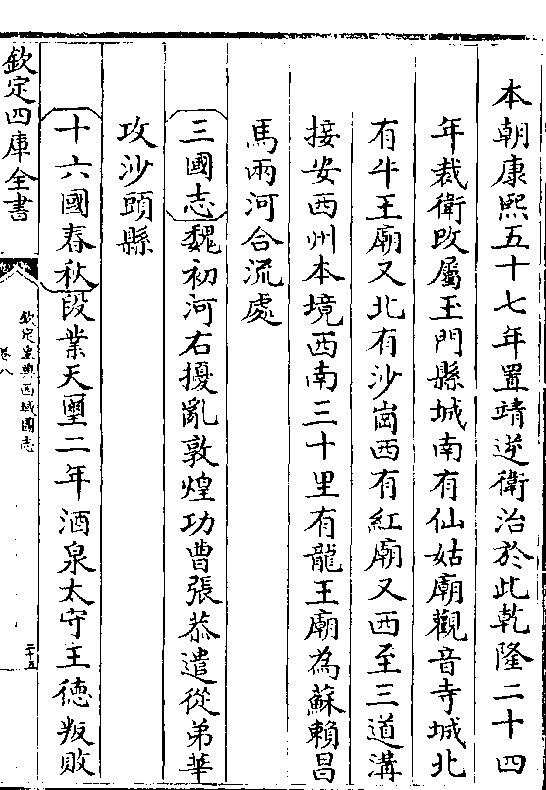 本朝康熙五十七年置靖逆衛治於此乾隆二十四
年裁衛改屬玉門縣城南有仙姑廟觀音寺城北
有牛王廟又北有沙崗西有紅廟又西至三道溝
接安西州本境西南三十里有龍王廟為蘇賴昌
馬兩河合流處
三國志魏初河右擾亂敦煌功曹張恭遣從弟華
攻沙頭縣
十六國春秋段業天璽二年酒泉太守王德叛敗
欽定四庫全書
欽定皇輿西域圖志
卷八
二十五